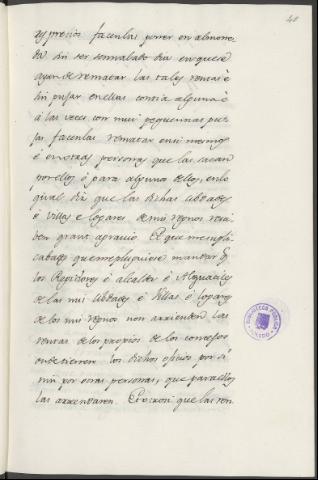 40
os precios facenlas poner en almone
da sin ser sennalado dia en que se
ayan de rematar las tales rentas è
sin pujar en ellas contia alguna è
à las veces con mui pequennas pu
jas facenlas rematar en si mesmos
è en otras personas que las sacan
por ellos ò para alguno dellos, en lo
qual diz que las dichas cibdades
è villas e logares de mis regnos resci
ben grant agravio. È que me supli
cabades que me pluguiese mandar q̃
los Regidores è alcaldes è Alguaciles
de las mis cibdades è Villas è logares
de los mis regnos non arrienden las
rentas de los propios de los concejos
onde tienen los dichos oficios por sì
nin por otras personas, que para ellos
las arrendaren. È otrosi que las ren
BIBLIOTECA